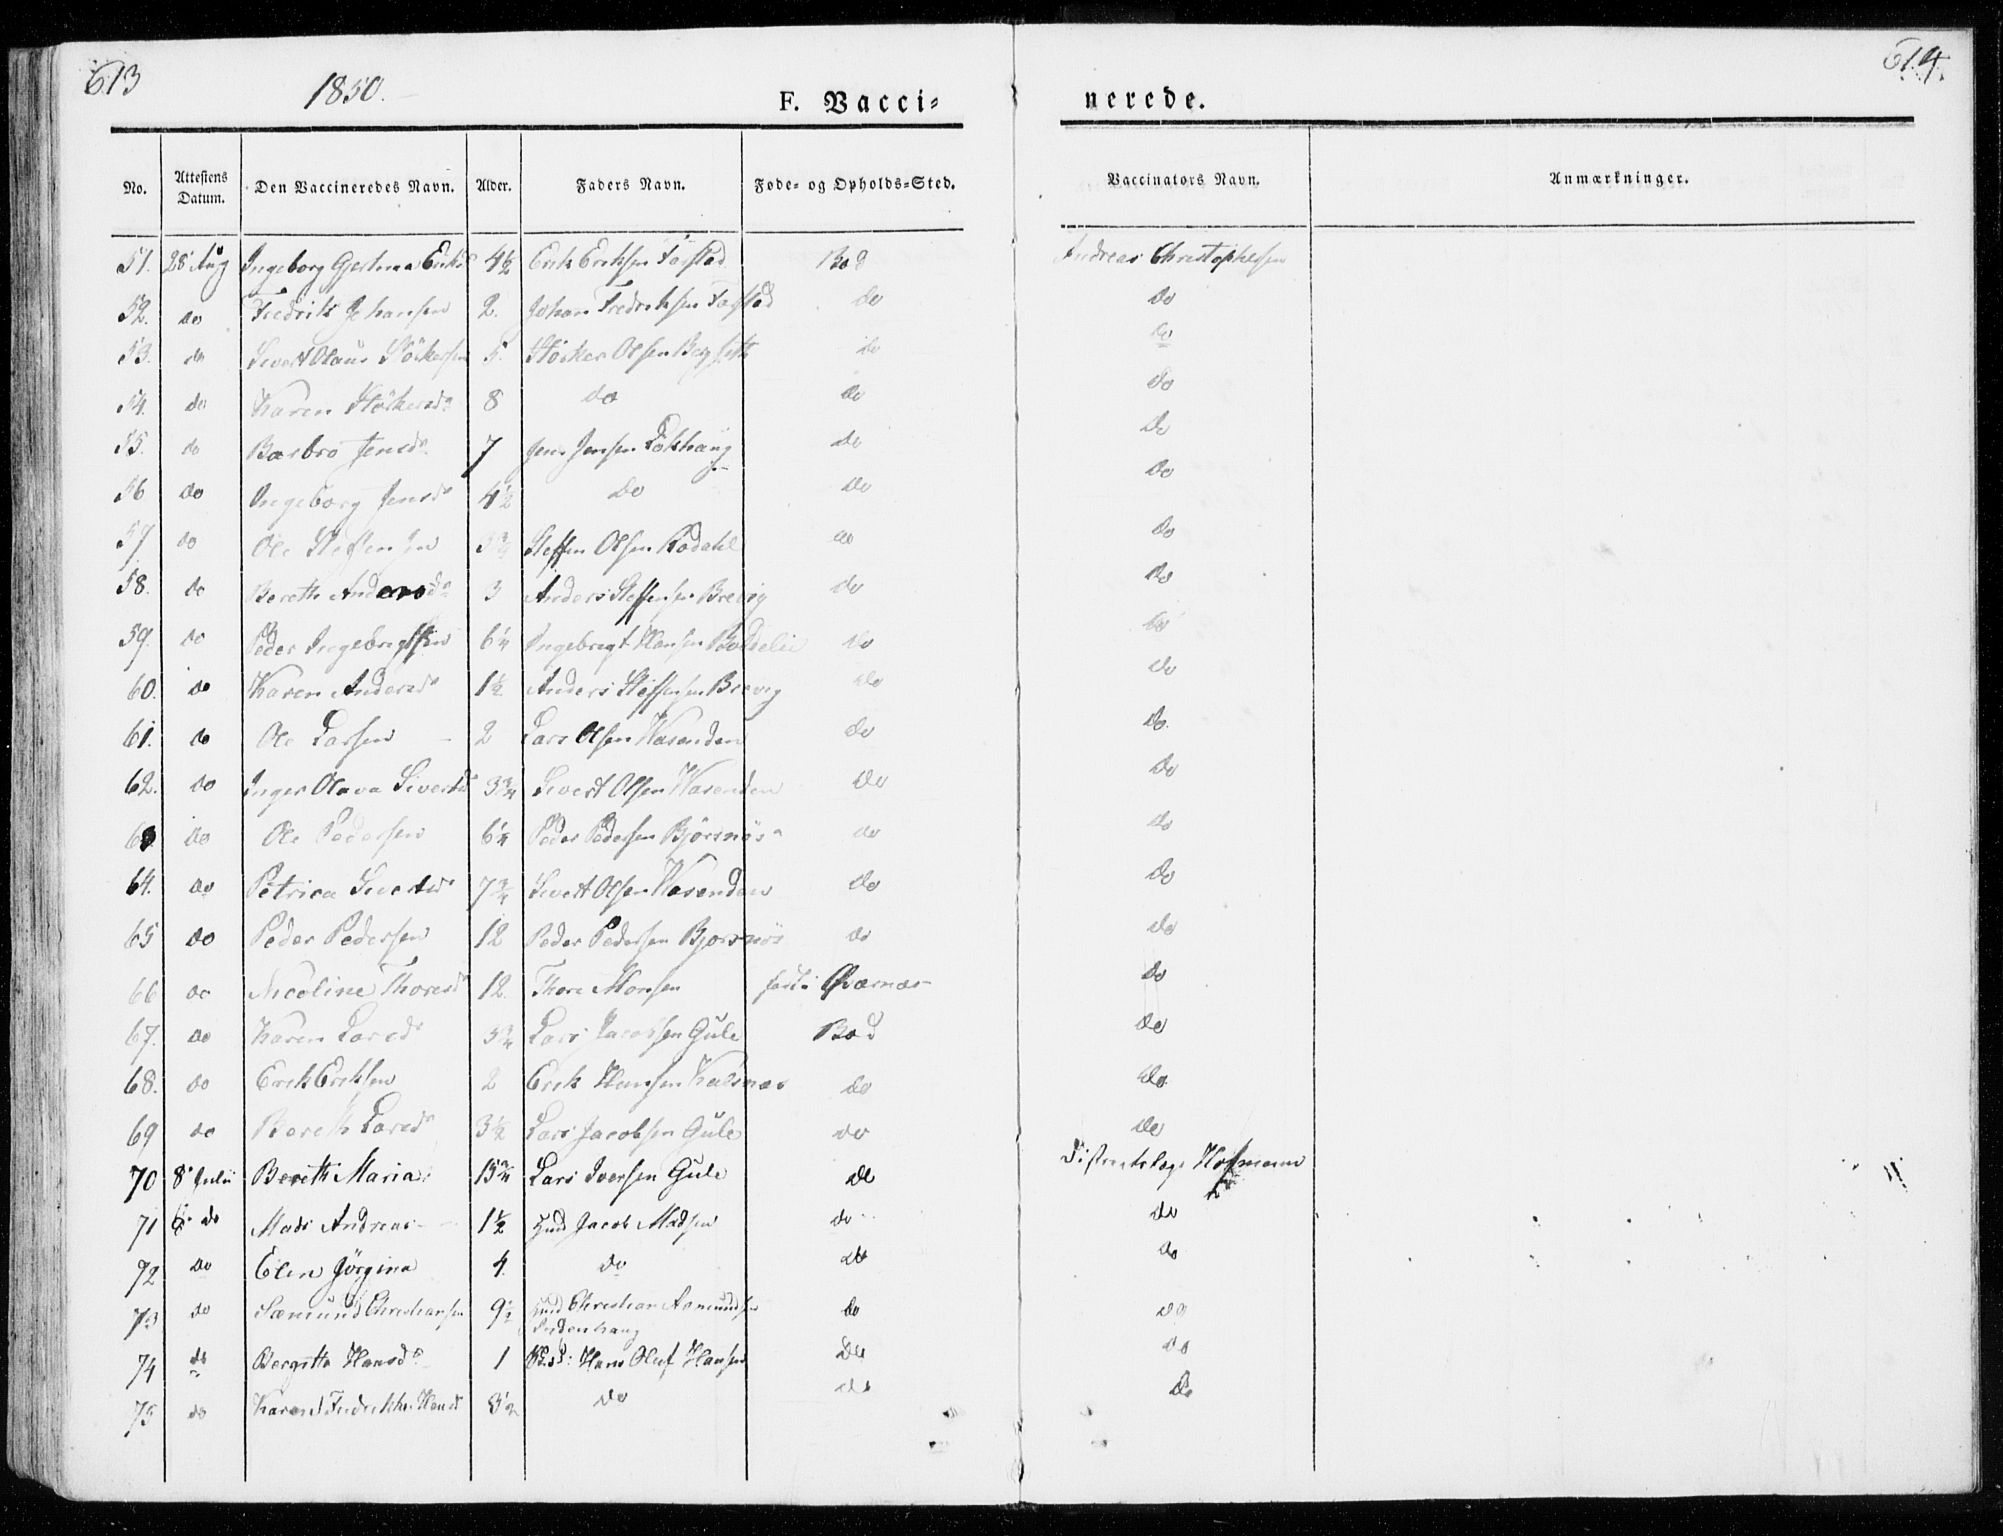 613
614.
1850.
F. Vacci-
nerede.
No. Attestens Datum. Den Vaccineredes Navn. Alder. Faders Navn. Føde- og Opholds-Sted. Vaccinators Navn. Anmærkninger.
51. 28 Aug Ingeborg Gjertina Eriksd 4½ Erik Eriksen Farstad Bod Andreas Christophersen
52. do Fredrik Johansen 2. Johan Fredriksen Farstad do do
53. do Sivert Olaus Stökersen 5. Störker Olsen Bergseth do do
54. do Karen Störkersdr 8 do do do
55. do Barbro Jensdr 7 Jens Jensen Lökhaug do do
56 do Ingeborg Jensdr 4½ do do do
57 do Ole Steffensen 5¾ Steffen Olsen Rødahl do do
58. do Bereth Andersdr 3 Anders Steffensen Brevig do do
59. do Peder Ingebrigtsen 6¼ Ingebrigt Hansen do do
60. do Karen Andersdr 1½ Anders Steffensen Brevig do do
61. do Ole Larsen 2 Lars Olsen Wasenden do do.
62. do Inger Olava Sivertsd 3¾ Sivert Olsen Wasenden do do
63 do Ole Pedersen 6¼ Peder Pedersen Bjørsnøs do do
64. do Petrica Sivertsdr 7¾ Sivert Olsen Wasenden do do
65 do Peder Pedersen 12 Peder Pedersen Bjorsnös do do
66 do Nicoline Thoresdr 12. Thore Monsen født i Qværnæs do
67. do Karen Larsdr 5¾ Lars Jacobsen Gule Bod do
68. do Erik Eriksen 2 Erik Hansen do do
69 do Bereth Larsdr 3½ Lars Jacobsen Gule do do
70 8 Juli Bereth Maria 15¾ Lars Iversen Gule do Districtslæge Hofmann
71 do Mads Andreas 1½ Huusm Jacob Madsen do do
72 do Elen Jörgina 4. do do do
73 do Sæmund Christiansen 9½ Christian do do
74 do Bergitte Hansdr 1 Hans Oluf Hansen do do
75 do Karen Fredrikke Hansd 3½ do do do